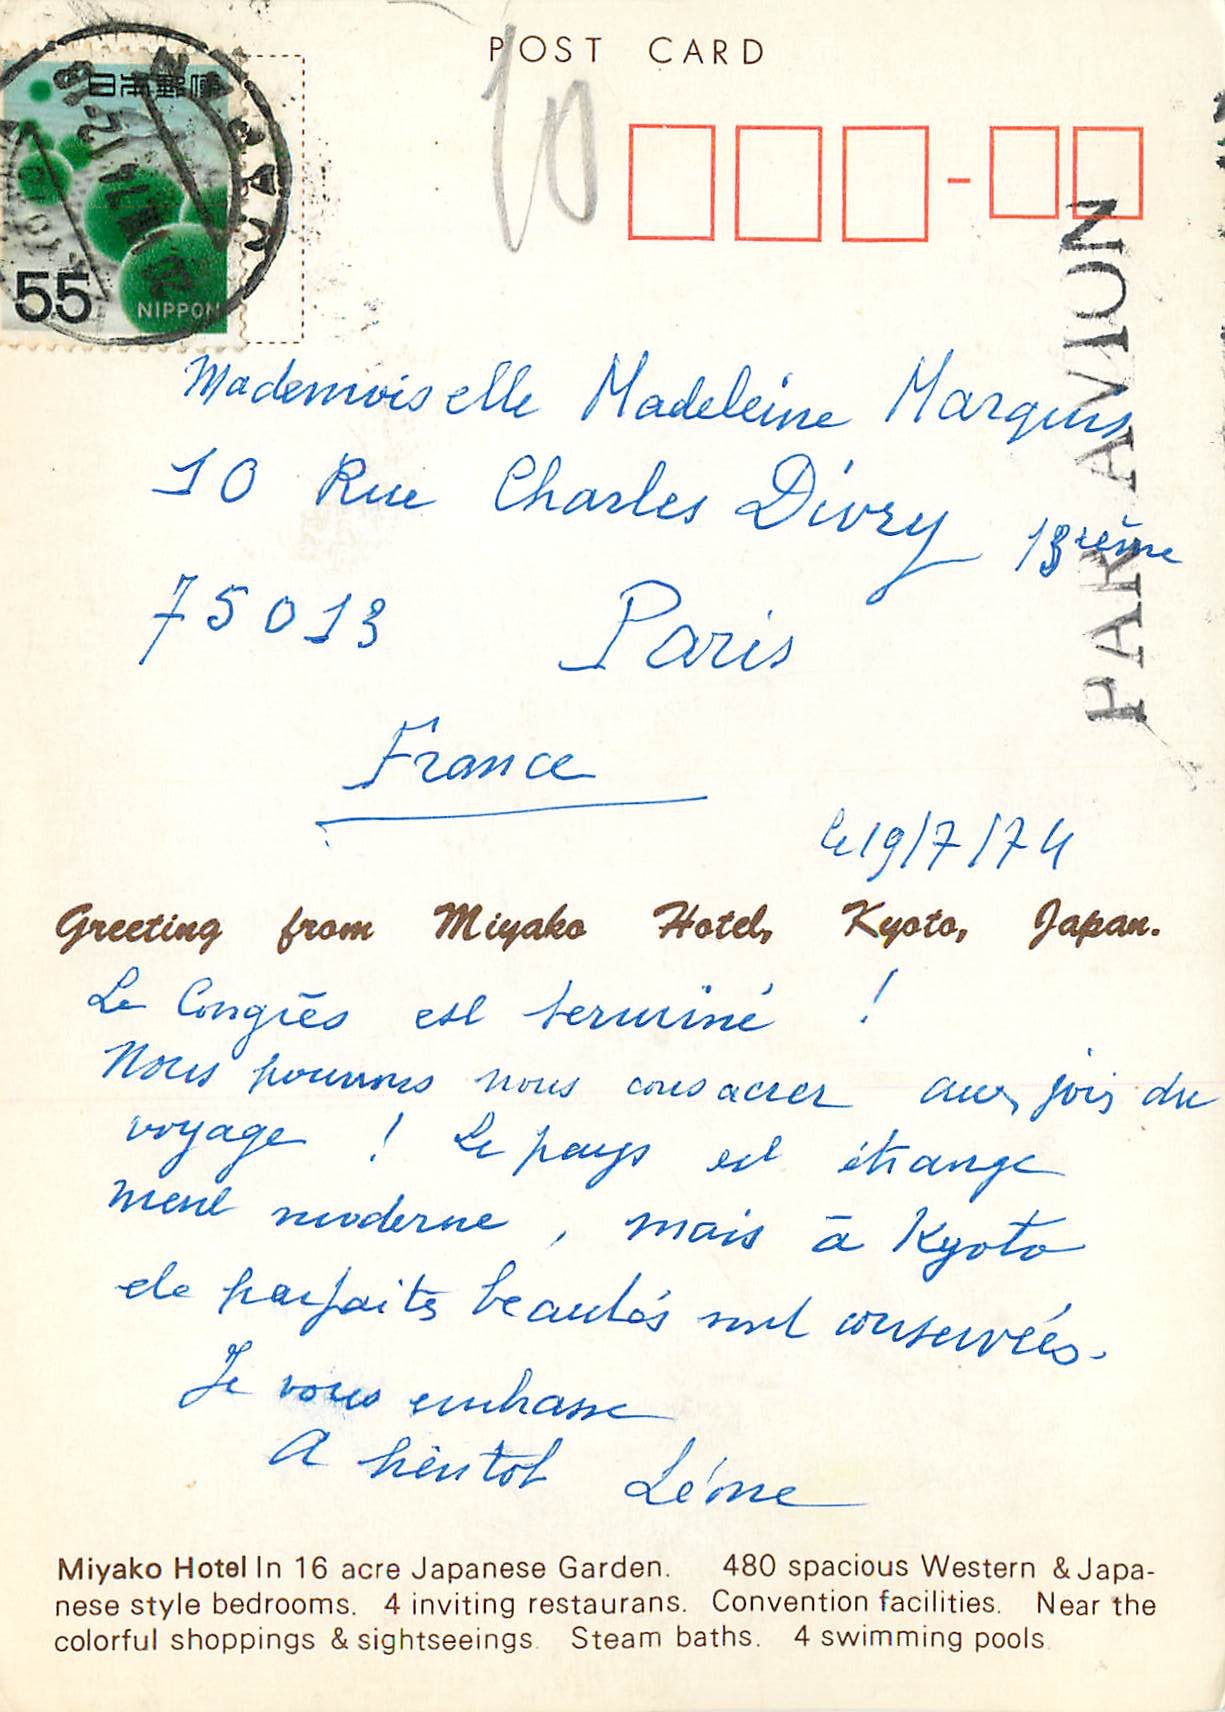 POST CARD
10
日本郵便
55
NIPPON
JAPAN
PAR AVION
Mademoiselle Madeleine Marquis
10 Rue Charles Divry 13ième
75013 Paris
France
le 19/7/74
Greeting from Miyako Hotel, Kyoto, Japan.
Le Congrès est terminé !
Nous pouvons nous consacrer aux jois du
voyage ! Le pays est étrange
ment moderne, mais à Kyoto
de parfaits beautés sont conservées.
Je vous embrasse
A bientot Léone
Miyako Hotel In 16 acre Japanese Garden. 480 spacious Western & Japa-
nese style bedrooms. 4 inviting restaurans. Convention facilities. Near the
colorful shoppings & sightseeings. Steam baths. 4 swimming pools.